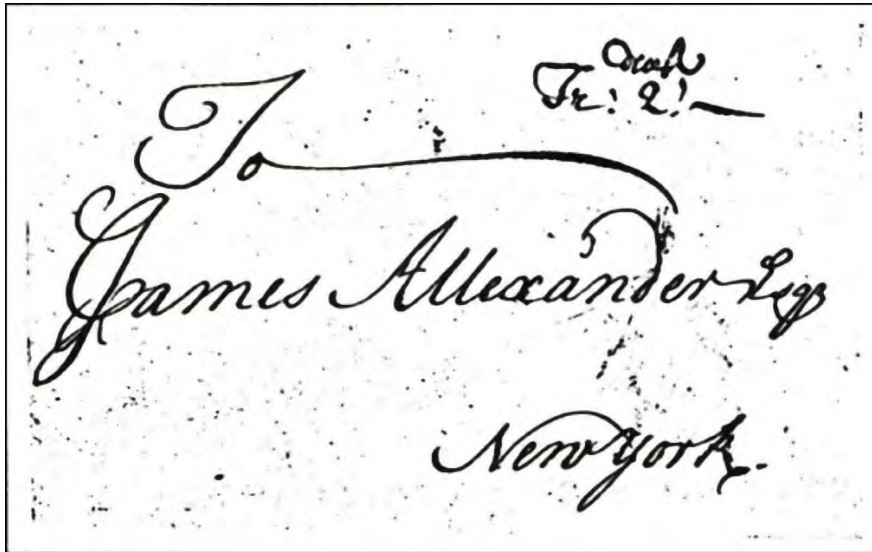 To
James Allexander Esqr
New York